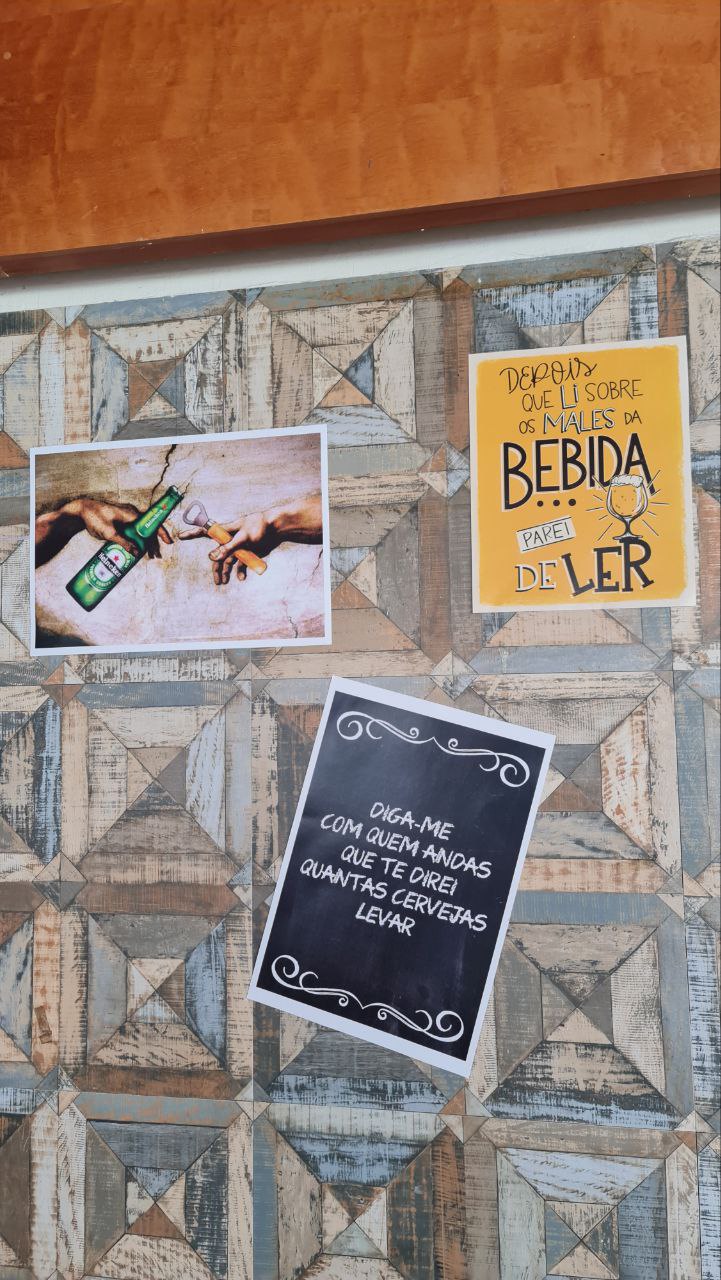 Heineken
Heineken
DEPOIS
QUE LI SOBRE
OS MALES DA
BEBIDA
...
PAREI
DE LER
DIGA-ME
COM QUEM ANDAS
QUE TE DIREI
QUANTAS CERVEJAS
LEVAR